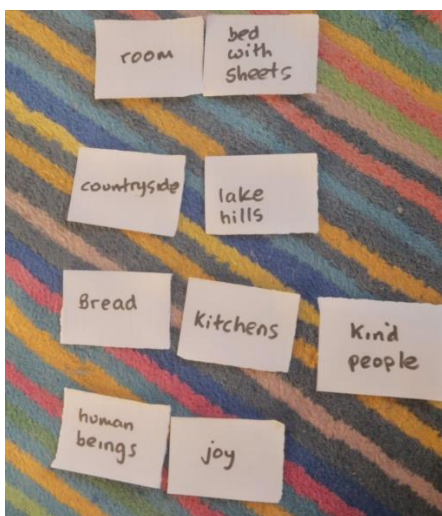 room
bed
with
sheets
countryside
lake
hills
Bread
Kitchens
Kind
people
human
beings
joy